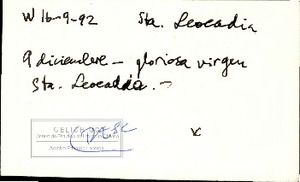 W 16-9-92 Sta. Leocadia
9 diciembre - gloriosa virgen
Sta. Leocadia. -